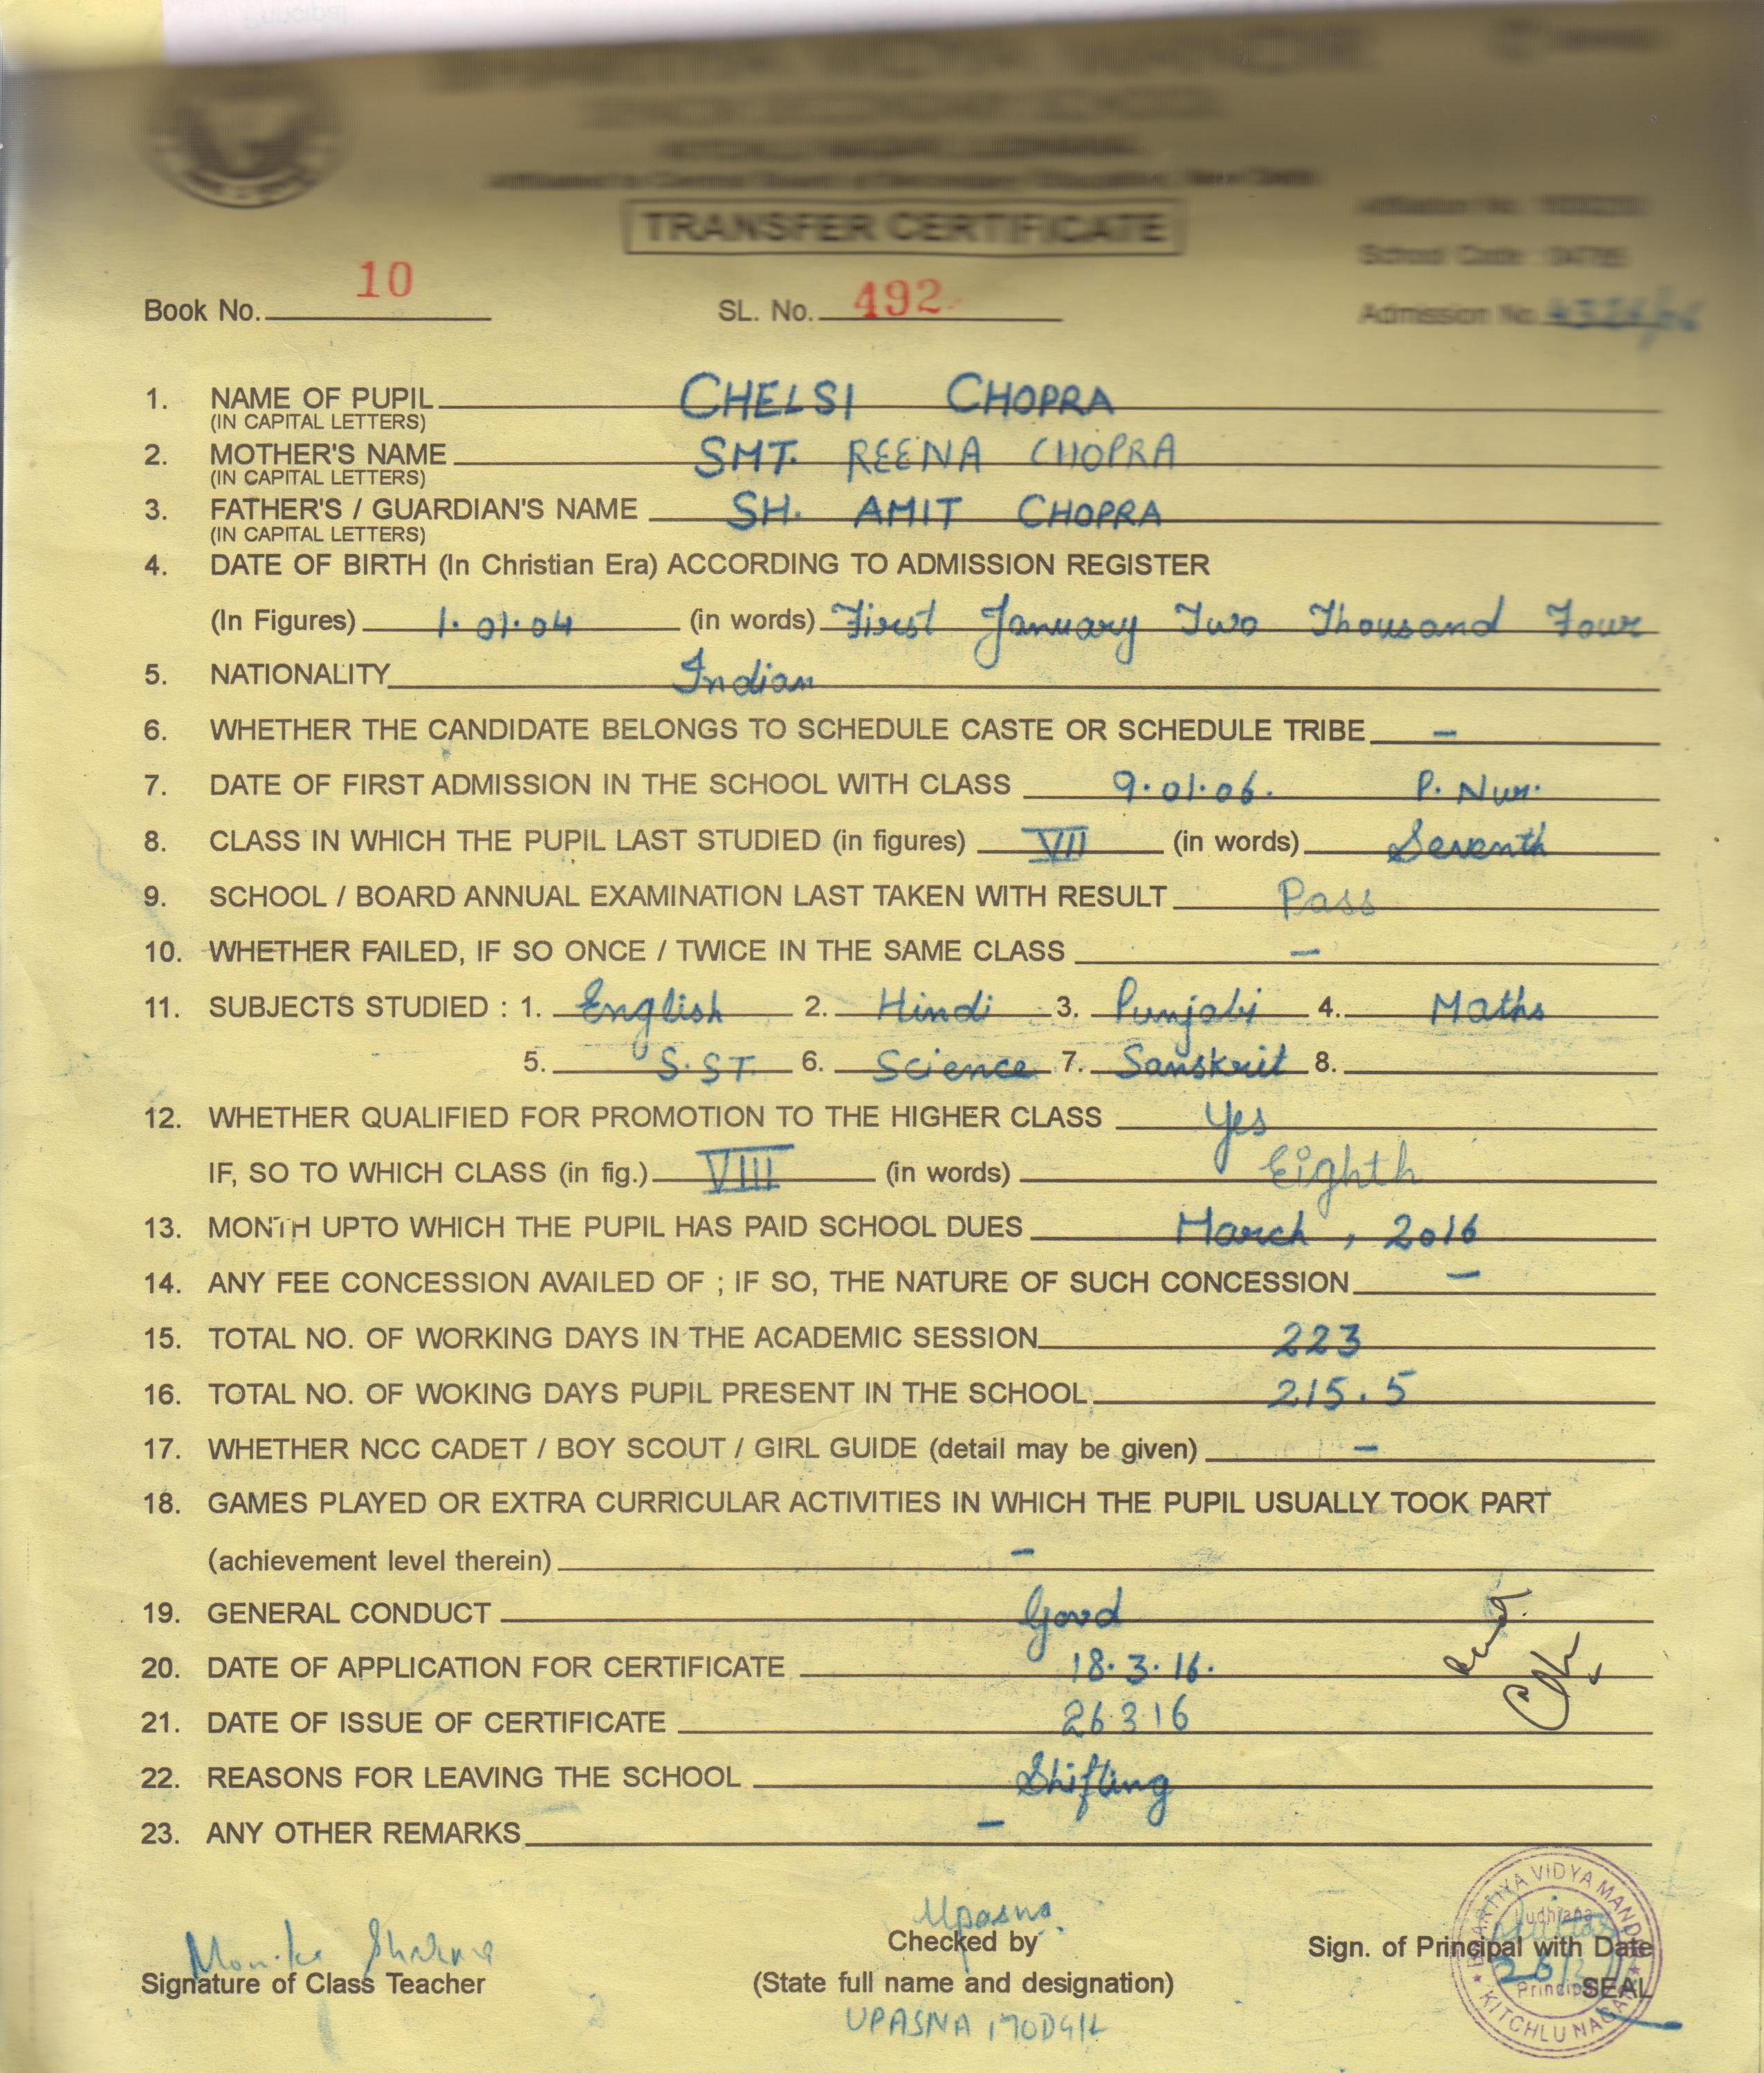 TRANSFER CERTIFICATE
Book No. 10 SL. No. 492
Admission No.
1. NAME OF PUPIL CHELSI CHOPRA
(IN CAPITAL LETTERS)
2. MOTHER'S NAME SMT. REENA CHOPRA
(IN CAPITAL LETTERS)
3. FATHER'S / GUARDIAN'S NAME SH. AMIT CHOPRA
(IN CAPITAL LETTERS)
4. DATE OF BIRTH (In Christian Era) ACCORDING TO ADMISSION REGISTER
(In Figures) 1.01.04 (in words) First January Two Thousand Four
5. NATIONALITY Indian
6. WHETHER THE CANDIDATE BELONGS TO SCHEDULE CASTE OR SCHEDULE TRIBE –
7. DATE OF FIRST ADMISSION IN THE SCHOOL WITH CLASS 9.01.06. P. Nur.
8. CLASS IN WHICH THE PUPIL LAST STUDIED (in figures) VII (in words) Seventh
9. SCHOOL / BOARD ANNUAL EXAMINATION LAST TAKEN WITH RESULT Pass
10. WHETHER FAILED, IF SO ONCE / TWICE IN THE SAME CLASS –
11. SUBJECTS STUDIED : 1. English 2. Hindi 3. Punjabi 4. Maths
5. S.ST. 6. Science 7. Sanskrit 8.
12. WHETHER QUALIFIED FOR PROMOTION TO THE HIGHER CLASS Yes
IF, SO TO WHICH CLASS (in fig.) VIII (in words) Eighth
13. MONTH UPTO WHICH THE PUPIL HAS PAID SCHOOL DUES March, 2016
14. ANY FEE CONCESSION AVAILED OF ; IF SO, THE NATURE OF SUCH CONCESSION –
15. TOTAL NO. OF WORKING DAYS IN THE ACADEMIC SESSION 223
16. TOTAL NO. OF WOKING DAYS PUPIL PRESENT IN THE SCHOOL 215.5
17. WHETHER NCC CADET / BOY SCOUT / GIRL GUIDE (detail may be given) –
18. GAMES PLAYED OR EXTRA CURRICULAR ACTIVITIES IN WHICH THE PUPIL USUALLY TOOK PART
(achievement level therein) –
19. GENERAL CONDUCT Good
20. DATE OF APPLICATION FOR CERTIFICATE 18.3.16.
21. DATE OF ISSUE OF CERTIFICATE 26 3 16
22. REASONS FOR LEAVING THE SCHOOL Shifting
23. ANY OTHER REMARKS –
Monika Sharma
Signature of Class Teacher
Upasna
Checked by
(State full name and designation)
UPASNA MODGIL
Sign. of Principal with Date
SEAL
BHARTIYA VIDYA MANDIR
Ludhiana
Principal
KITCHLU NAGAR